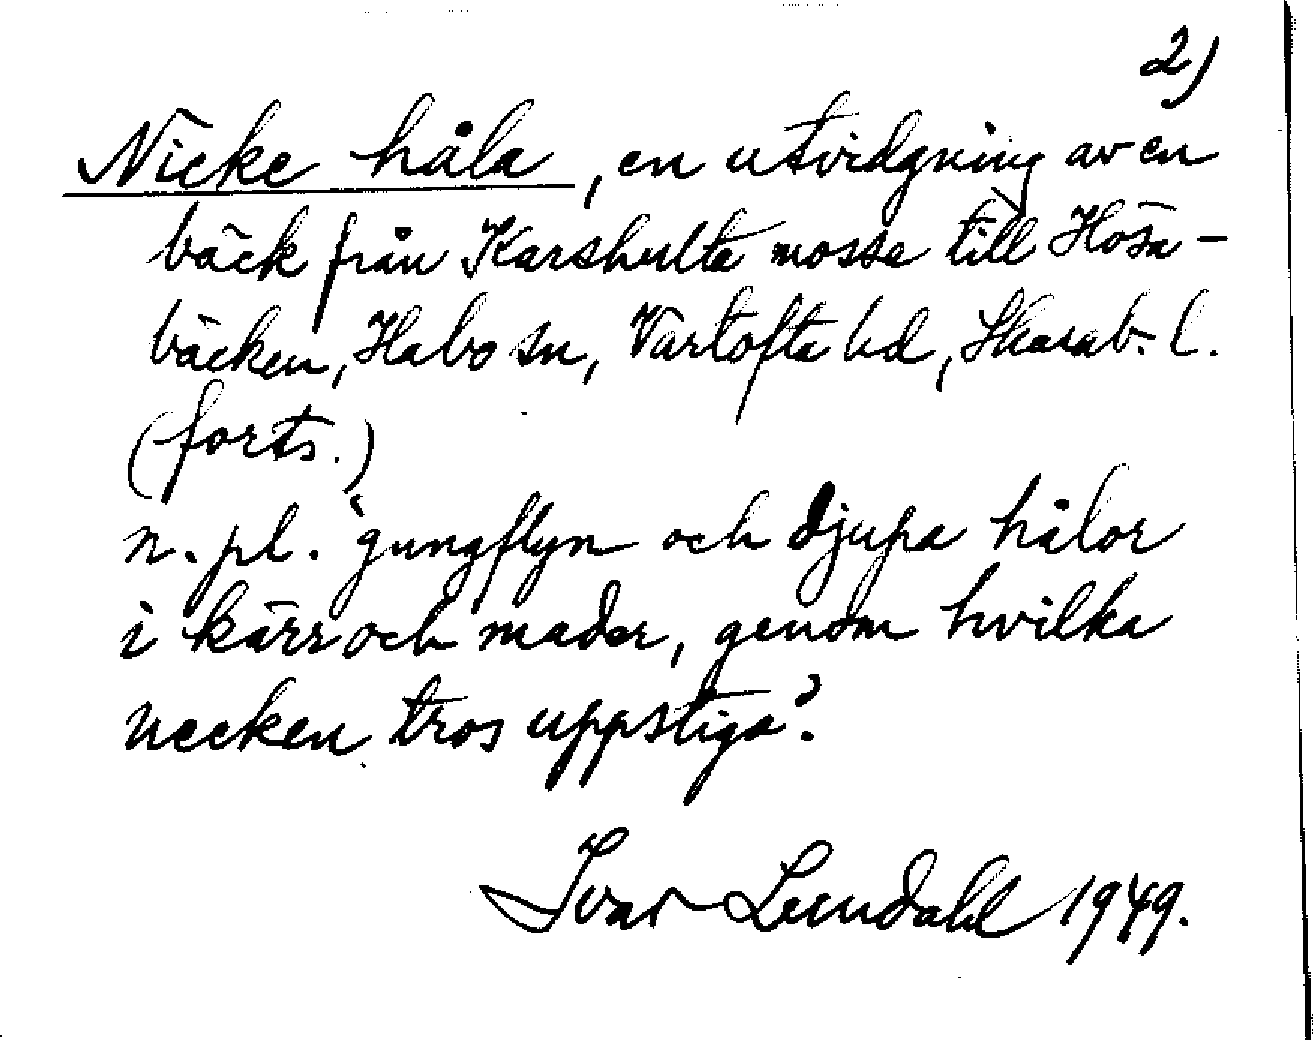 2)
Nicke håla, en utvidgning av en
bäck från Karshulta mosse till Hösna-
bäcken, Habo sn, Vartofta hd, Skarab. l.
(forts.)
n. pl. 'gungflyn och djupa hålor
i kärr och mader, genom hvilka
necken tros uppstiga'.
Ivar Lundahl 1949.